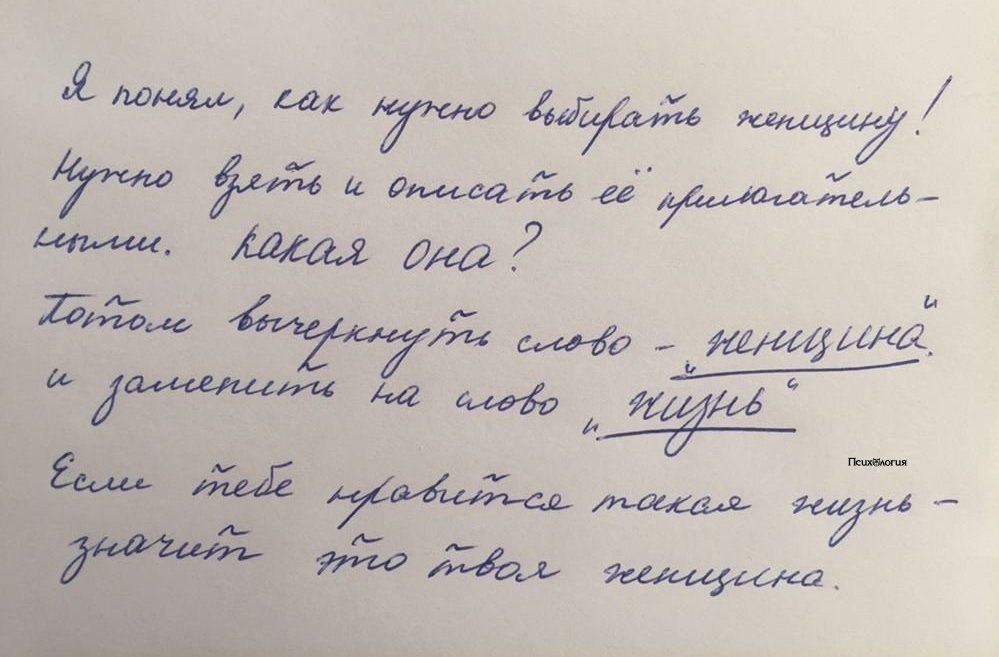 Я понял, как нужно выбирать женщину!
Нужно взять и описать её прилагатель-
ными. Какая она?
Потом вычеркнуть слово - "женщина"
и заменить на слово "жизнь"
Психология
Если тебе нравится такая жизнь -
значит это твоя женщина.